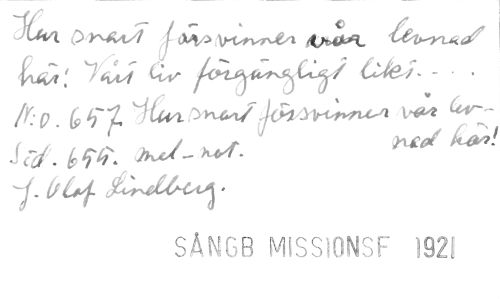 Hur snart försvinner vår levnad
här! Vårt liv förgängligt likt....
N:o. 657. Hur snart försvinner vår lev-
nad här!
Sid. 655. mel-not.
J. Olof Lindberg.
SÅNGB MISSIONSF 1921